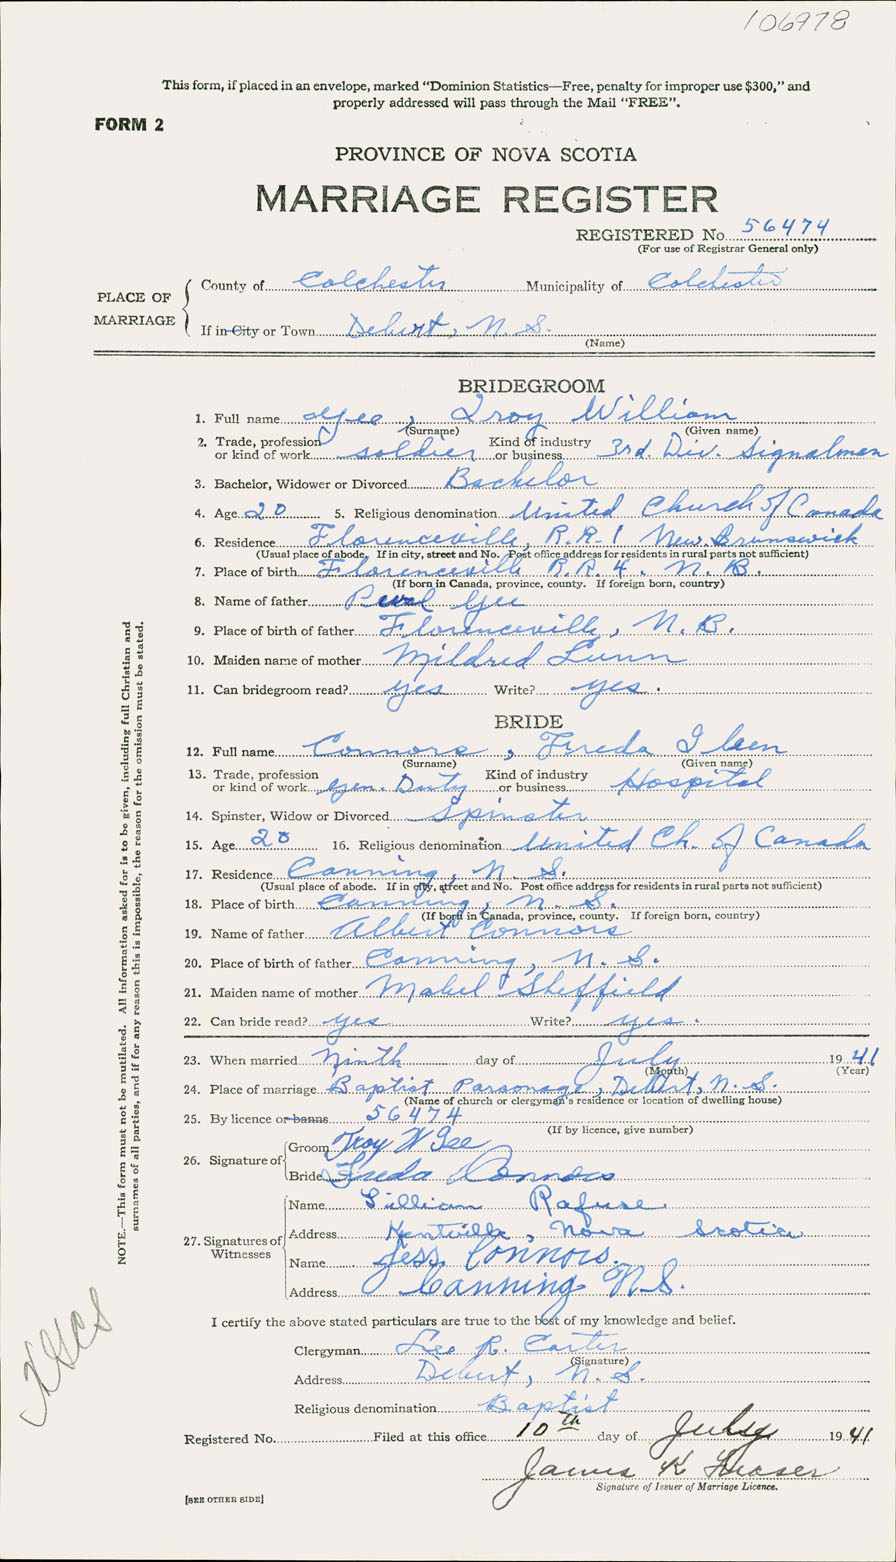 106978
This form, if placed in an envelope, marked "Dominion Statistics—Free, penalty for improper use $300," and
properly addressed will pass through the Mail "FREE".
FORM 2
PROVINCE OF NOVA SCOTIA
MARRIAGE REGISTER
REGISTERED No. 56474
(For use of Registrar General only)
PLACE OF MARRIAGE
County of Colchester Municipality of Colchester
If in City or Town Debert, N. S.
(Name)
BRIDEGROOM
1. Full name Gee, Troy William
(Surname) (Given name)
2. Trade, profession or kind of work soldier Kind of industry or business 3rd. Div. Signalman
3. Bachelor, Widower or Divorced Bachelor
4. Age 20 5. Religious denomination United Church of Canada
6. Residence Florenceville, R.R.1 New Brunswick
(Usual place of abode. If in city, street and No. Post office address for residents in rural parts not sufficient)
7. Place of birth Florenceville R.R. 4. N. B.
(If born in Canada, province, county. If foreign born, country)
8. Name of father Gee
9. Place of birth of father Florenceville, N. B.
10. Maiden name of mother Mildred Lunn
11. Can bridegroom read? yes Write? yes.
BRIDE
12. Full name Connors, Freda Ileen
(Surname) (Given name)
13. Trade, profession or kind of work gen. Duty Kind of industry or business Hospital
14. Spinster, Widow or Divorced Spinster
15. Age 20 16. Religious denomination United Ch. of Canada
17. Residence Canning, N. S.
(Usual place of abode. If in city, street and No. Post office address for residents in rural parts not sufficient)
18. Place of birth Canning, N. S.
(If born in Canada, province, county. If foreign born, country)
19. Name of father Albert Connors
20. Place of birth of father Canning, N. S.
21. Maiden name of mother Mabel Sheffield
22. Can bride read? yes Write? yes.
23. When married Ninth day of July 1941
(Month) (Year)
24. Place of marriage Baptist Parsonage, Debert, N. S.
(Name of church or clergyman's residence or location of dwelling house)
25. By licence or banns 56474
(If by licence, give number)
26. Signature of
Groom Troy W Gee
Bride Freda Connors
27. Signatures of Witnesses
Name Gillian Rafuse
Address Kentville, Nova Scotia
Name Jess Connors.
Address Canning N.S.
I certify the above stated particulars are true to the best of my knowledge and belief.
Clergyman Lee R. Carter
(Signature)
Address Debert, N. S.
Religious denomination Baptist
Registered No. Filed at this office 10th day of July 1941
James K Fraser
Signature of Issuer of Marriage Licence.
[SEE OTHER SIDE]
NOTE.—This form must not be mutilated. All information asked for is to be given, including full Christian and
surnames of all parties, and if for any reason this is impossible, the reason for the omission must be stated.